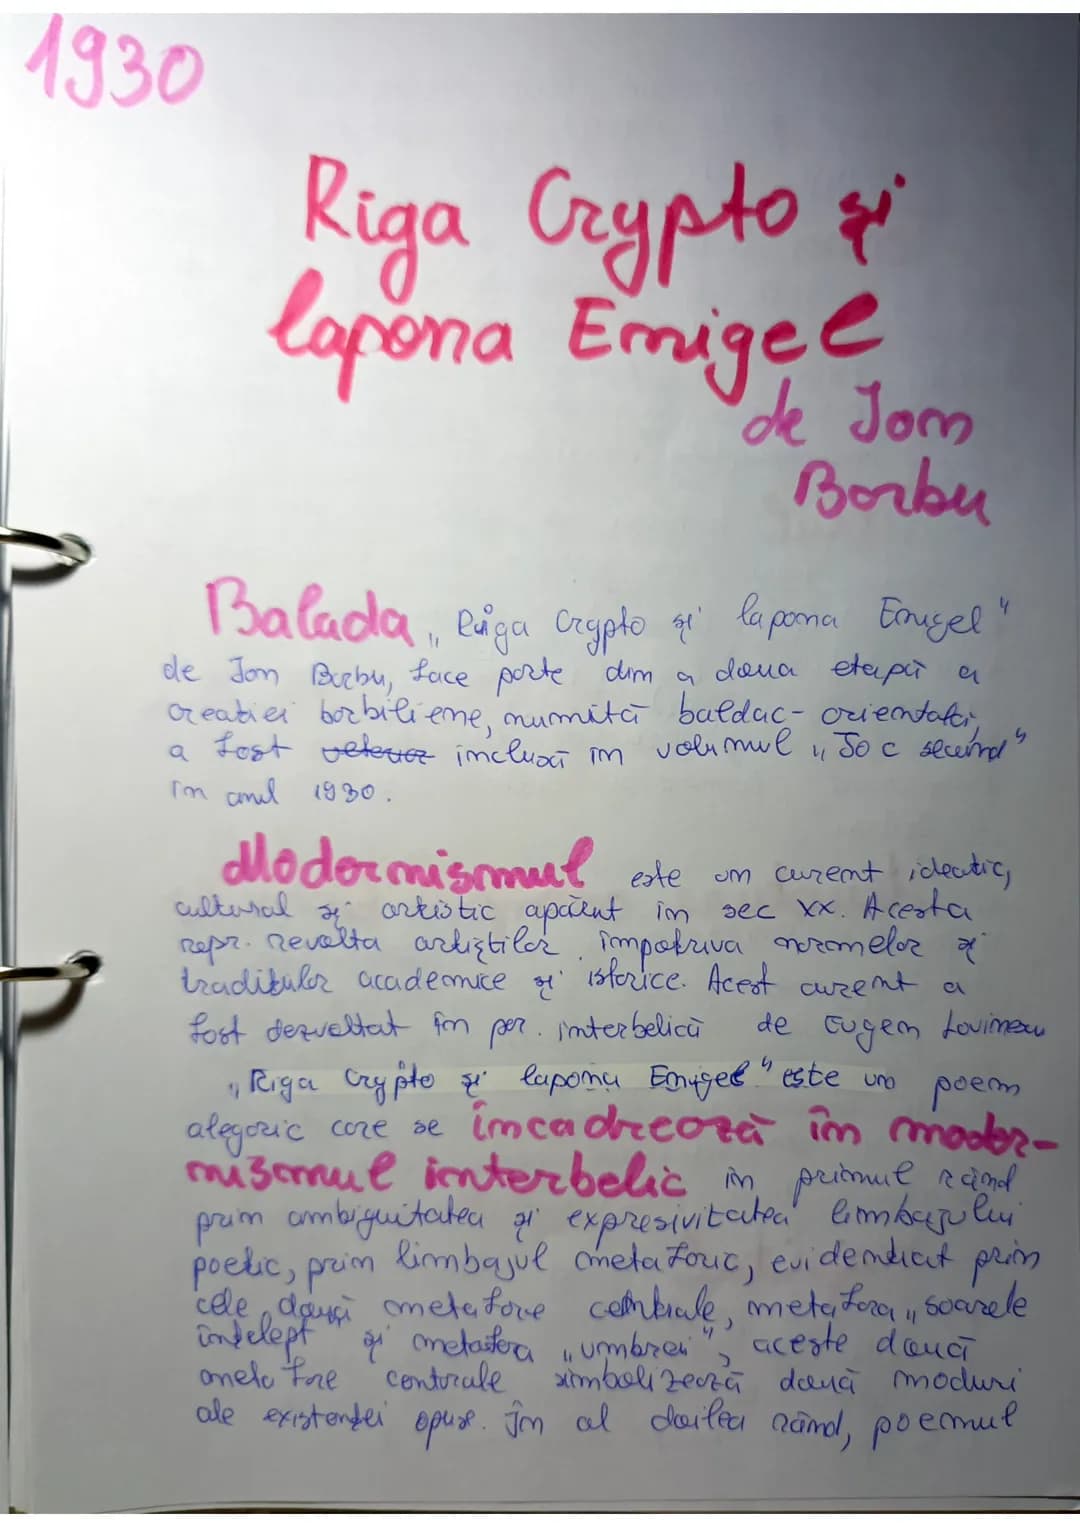 1930
Riga Crypto și
lapona Enigel
de Ion
Barbu
Balada „Riga Crypto și lapona Enigel"
de Ion Barbu, face parte din a doua etapă a
creatiei barbiliene, numită baldac-orientală,
a fost inclusă în volumul „Joc secund"
în anul 1930.
Modernismul este un curent ideatic,
cultural și artistic apărut în sec XX. Acesta
repr. revolta artiștilor împotriva normelor și
traditiilor academice și istorice. Acest curent a
fost dezvoltat în per. interbelică de Eugen Lovinescu
„Riga Crypto și lapona Enigel" este un poem
alegoric care se încadrează în moder-
nismul interbelic în primul rând
prin ambiguitatea și expresivitatea limbajului
poetic, prin limbajul metaforic, evidentiat prin
cele două metafore centrale, metafora „soarele
întelept și metafora „umbrei", aceste două
metafore centrale simbolizează două moduri
ale existenței opuse. În al doilea rând, poemul